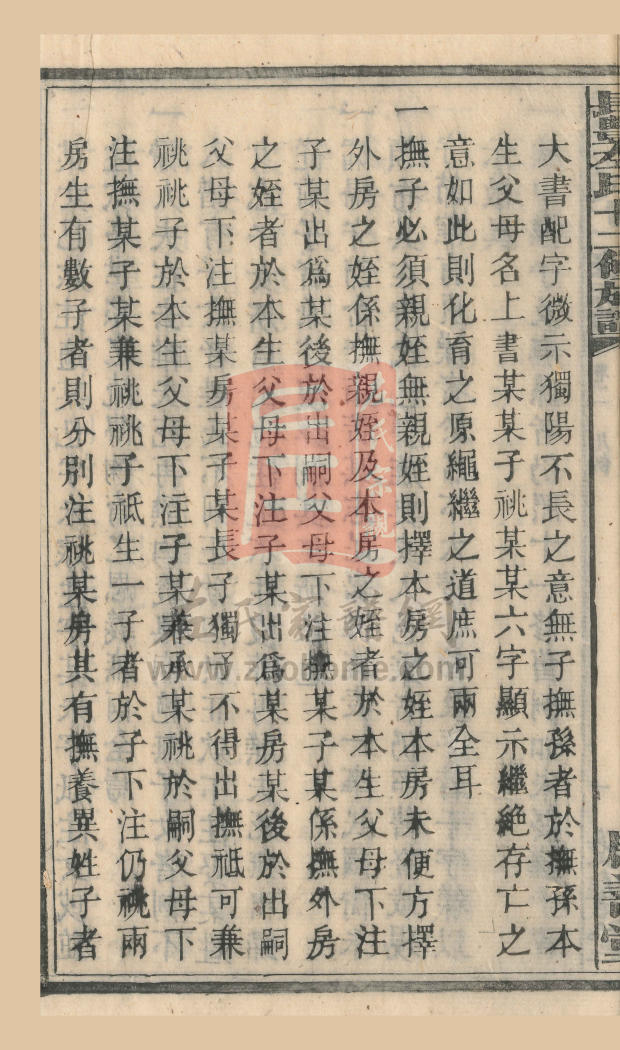 大書配字微示獨陽不長之意無子撫孫者於撫孫本
生父母名上書某某子祧某某六字顯示繼絶存亡之
意如此則化育之原繩繼之道庶可兩全耳
一撫子必須親姪無親姪則擇本房之姪本房未便方擇
外房之姪係撫親姪及本房之姪者於本生父母下注
子某出爲某後於出嗣父母下注撫某子某係撫外房
之姪者於本生父母下注子某出爲某房某後於出嗣
父母下注撫某房某子某長子獨子不得出撫祗可兼
祧祧子於本生父母下注子某兼承某祧於嗣父母下
注撫某子某兼祧祧子祗生一子者於子下注仍祧兩
房生有數子者則分別注祧某房其有撫養異姓子者
www.zbohome.com